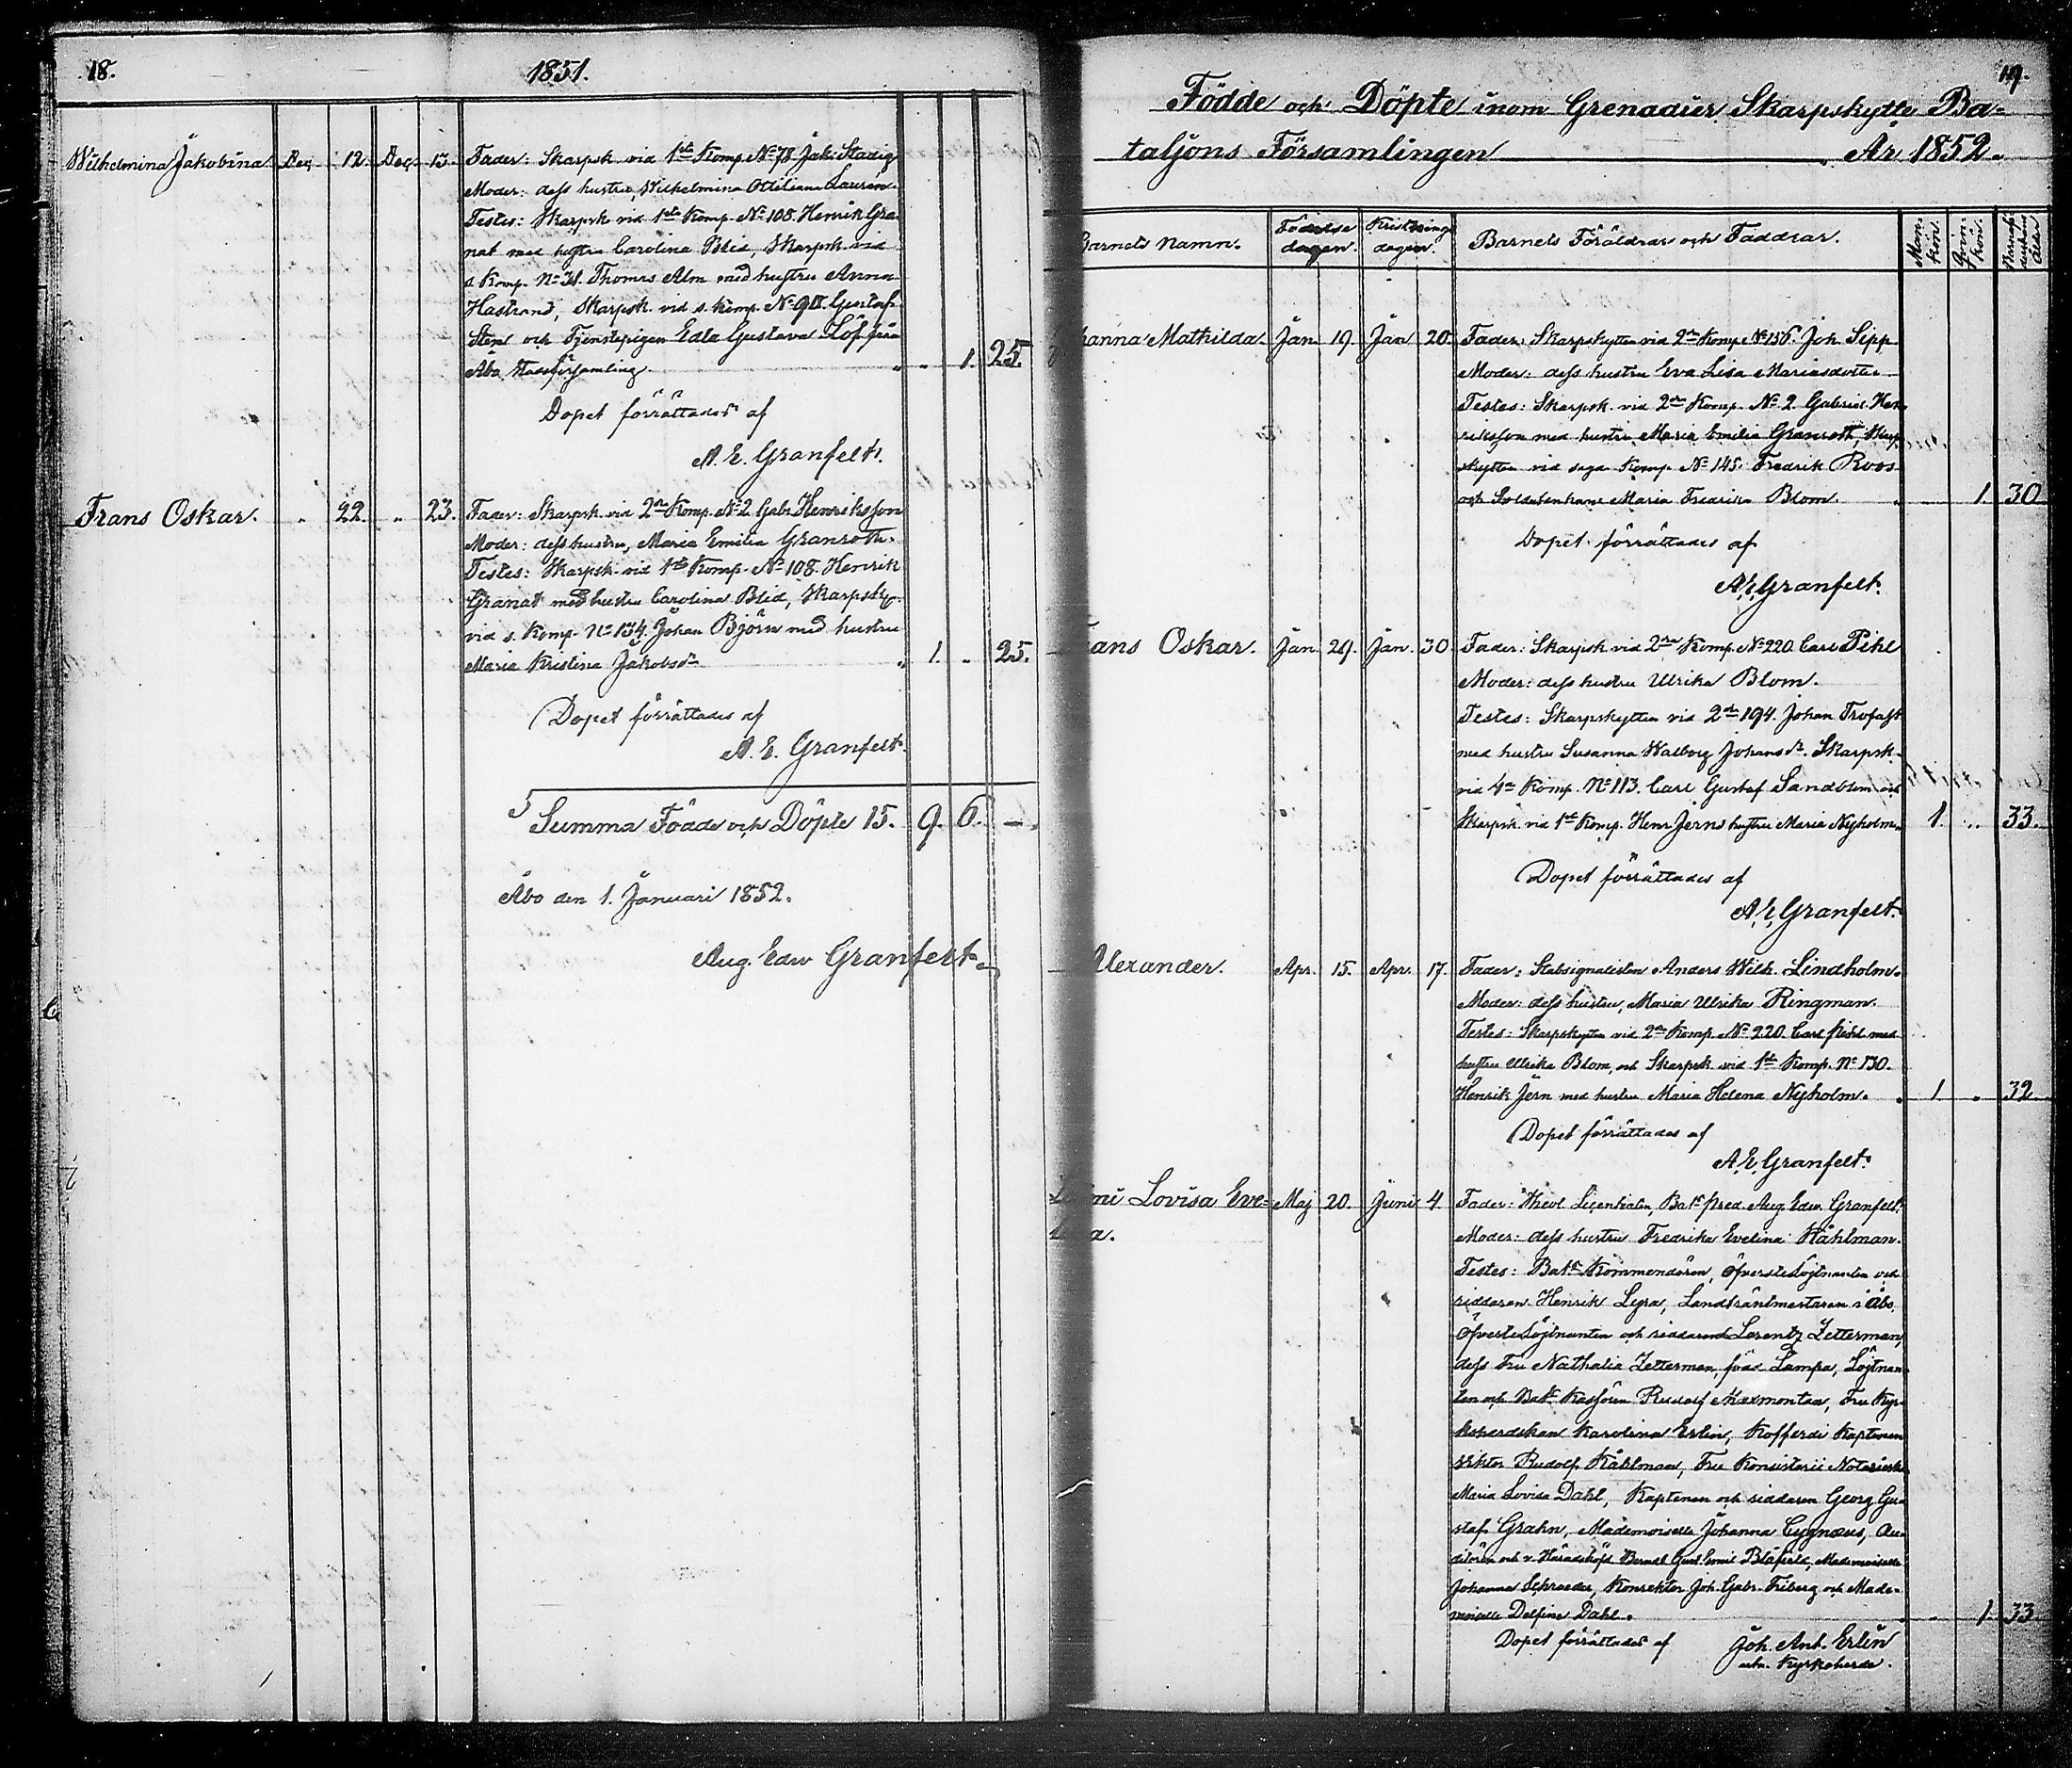 18.
1851.
Wilhelmina Jakobina. Dec. 12. Dec. 13. Fader: Skarpsk. vid 1sta Komp. No 78 Jak. Stadig
Moder: dess hustru, Wilhelmina Ottiliana Laurén.
Testes: Skarpsk. vid 1sta Komp. No 108. Henrik Gra-
nat med hustru Carolina Blid, Skarpsk. vid
s. Komp. No 31. Thomas Alm med hustru Anna
Hastrand, Skarpsk. vid s. Komp. Gustaf
Sten och Tjenstepigan Edla Gustava Löf från
Åbo Stadsförsamling. " . 1. 25.
Dopet förrättades af
A. E. Granfelt.
Frans Oskar. " 22. " 23. Fader: Skarpsk. vid 2dra Komp. No 2. Gabr. Henriksson
Moder: dess hustru, Maria Emilia Granroth.
Testes: Skarpsk. vid 1sta Komp. No 108. Henrik
Granat med hustru Carolina Blid, Skarpsky.
vid s. Komp. No 134. Johan Björn med hustru
Maria Kristina Jakobsdr " 1. " 25.
Dopet förrättades af
A. E. Granfelt.
Summa Födde och Döpte 15. 9. 6. —
Åbo den 1. Januari 1852.
Aug. Edw Granfelt.
19.
Födde och Döpte inom Grenadier Skarpskytte Ba-
taljons Församlingen År 1852.
Barnets namn. Födelse dagen. Kristnings dagen. Barnets Föräldrar och Faddrar. Man kön. Qvin kön. Barnaföderskans ålder
hanna Mathilda. Jan. 19. Jan 20. Fader: Skarpskytten vid 2dra Komp. No 156. Joh. Sipp
Moder: dess hustru Eva Lisa Mariasdotter
Testes: Skarpsk. vid 2dra Komp. No 2. Gabriel Hen-
riksson med hustru Maria Emilia Granroth, Skarp-
skytten vid sagde Komp. No 145. Fredrik Roos
och Soldatenkan Maria Fredrika Blom. 1. 30
Dopet förrättades af
A. E. Granfelt.
ans Oskar. Jan. 29. Jan. 30. Fader: Skarpsk. vid 2dra Komp. No 220. Carl Pihl
Moder: dess hustru Ulrika Blom.
Testes: Skarpskytten vid 2dra 194. Johan Trofast
med hustru Susanna Walborg Johansdr. Skarpsk.
vid 4de Komp. No 113. Carl Gustaf Sandblom och
Skarpsk. vid 1sta Komp. Henr Jerns hustru Maria Nyholm. 1. " 33.
Dopet förrättades af
A. E. Granfelt.
Alexander. Apr. 15. Apr. 17. Fader: Stabsignalisten Anders Wilh. Lindholm.
Moder: dess hustru, Maria Ulrika Ringman.
Testes: Skarpskytten vid 2dra Komp. No 220. Carl Pihl med
hustru Ulrika Blom, och Skarpsk. vid 1sta Komp. No 130.
Henrik Jern med hustru Maria Helena Nyholm. 1 . 32
Dopet förrättades af
A. E. Granfelt.
mi Lovisa Eve- Maj 20. Juni 4. Fader: Theol. Licentiaten, Bats pred. Aug. Edw. Granfelt.
a. Moder: dess hustru Fredrika Evelina Kåhlman.
Testes: Batns Kommendören, Öfverstelöjtnanten och
riddaren Henrik Lyra, Landtränmästaren i Åbo,
Öfverstelöjtnanten och riddaren Lorentz Zetterman,
dess Fru Nathalia Zetterman, född Lampa, Löjtnan-
ten och Batns Kassören Rudolf Maxmontan, Fru Kyr-
koherdskan Karolina Erlin, Kofferdi Kaptenen
Viktor Rudolf Kåhlman, Fru Konsistorii Notarien
Maria Lovisa Dahl, Kaptenen och riddaren Georg Gu-
staf Grahn, Mademoiselle Johanna Cygnæus, Au-
ditören och v. Häradshöfd. Berndt Gust. Emil Blåfield, Mademoiselle
Johanna Schroeder, Konrektor Joh. Gabr. Friberg och Made-
moiselle Delfine Dahl. 1. 33
Dopet förrättades af Joh. Ant. Erlin
Kyrkoherde.